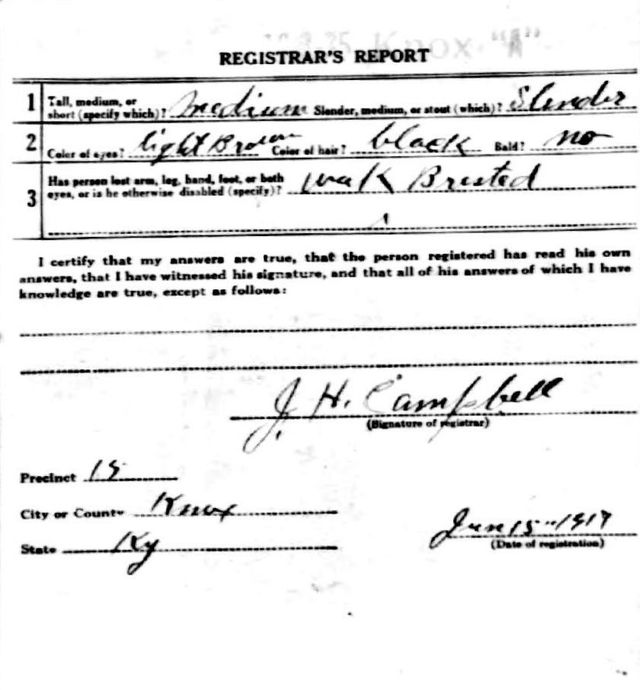 Knox "A"
REGISTRAR'S REPORT
1 Tall, medium, or short (specify which)? medium Slender, medium, or stout (which)? Slender
2 Color of eyes? light Brown Color of hair? black Bald? no
3 Has person lost arm, leg, hand, foot, or both eyes, or is he otherwise disabled (specify)? weak Brested
I certify that my answers are true, that the person registered has read his own
answers, that I have witnessed his signature, and that all of his answers of which I have
knowledge are true, except as follows:
J. H. Campbell
(Signature of registrar)
Precinct 15
City or County Knox
State Ky
Jun 15" 1917
(Date of registration)